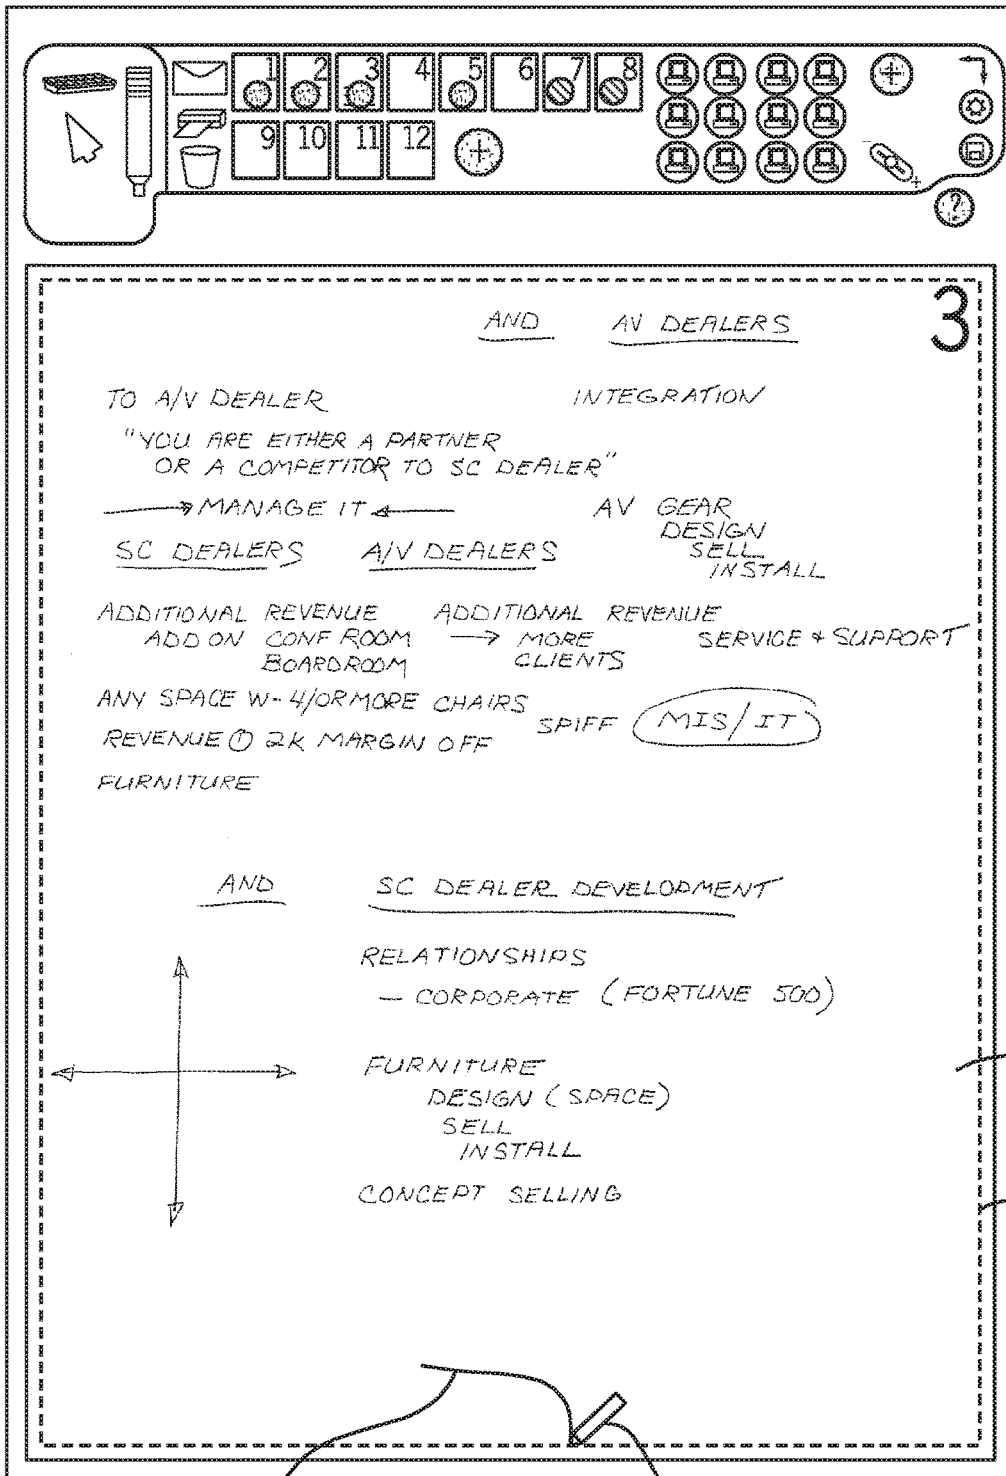 1 2 3 4 5 6 7 8
9 10 11 12
?
3
AND AV DEALERS
TO A/V DEALER INTEGRATION
"YOU ARE EITHER A PARTNER
OR A COMPETITOR TO SC DEALER"
MANAGE IT AV GEAR
DESIGN
SC DEALERS A/V DEALERS SELL
INSTALL
ADDITIONAL REVENUE ADDITIONAL REVENUE
ADD ON CONF ROOM → MORE SERVICE + SUPPORT
BOARDROOM CLIENTS
ANY SPACE W-4/OR MORE CHAIRS
SPIFF MIS/IT
REVENUE ① 2K MARGIN OFF
FURNITURE
AND SC DEALER DEVELOPMENT
RELATIONSHIPS
— CORPORATE (FORTUNE 500)
FURNITURE
DESIGN (SPACE)
SELL
INSTALL
CONCEPT SELLING